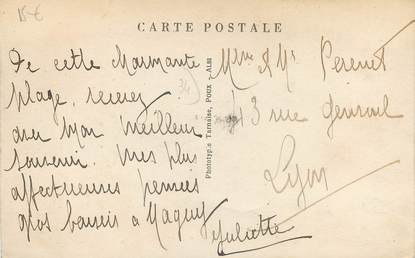 15 €
CARTE POSTALE
De cette
plage, recevez
avec mon meilleur
souvenir. mes plus
affectueuses pensées
gros baisers à Maguy
Juliette
Phototypie Tarnaise, POUX - ALBI
Mme & Mr
13 rue
Lyon